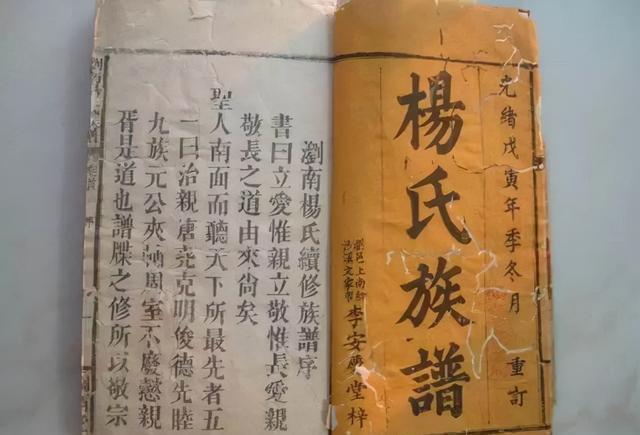 光緒戊寅年季冬月　重訂
楊氏族譜
瀏邑上南鄉
李安慶堂梓
瀏南楊氏續修族譜序
書曰立愛惟親立敬惟長愛親
敬長之道由來尙矣
聖人南面而聽天下所最先者五
一曰治親唐堯克明俊德先睦
九族元公夾輔周室不廢懿親
胥是道也譜牒之修所以敬宗